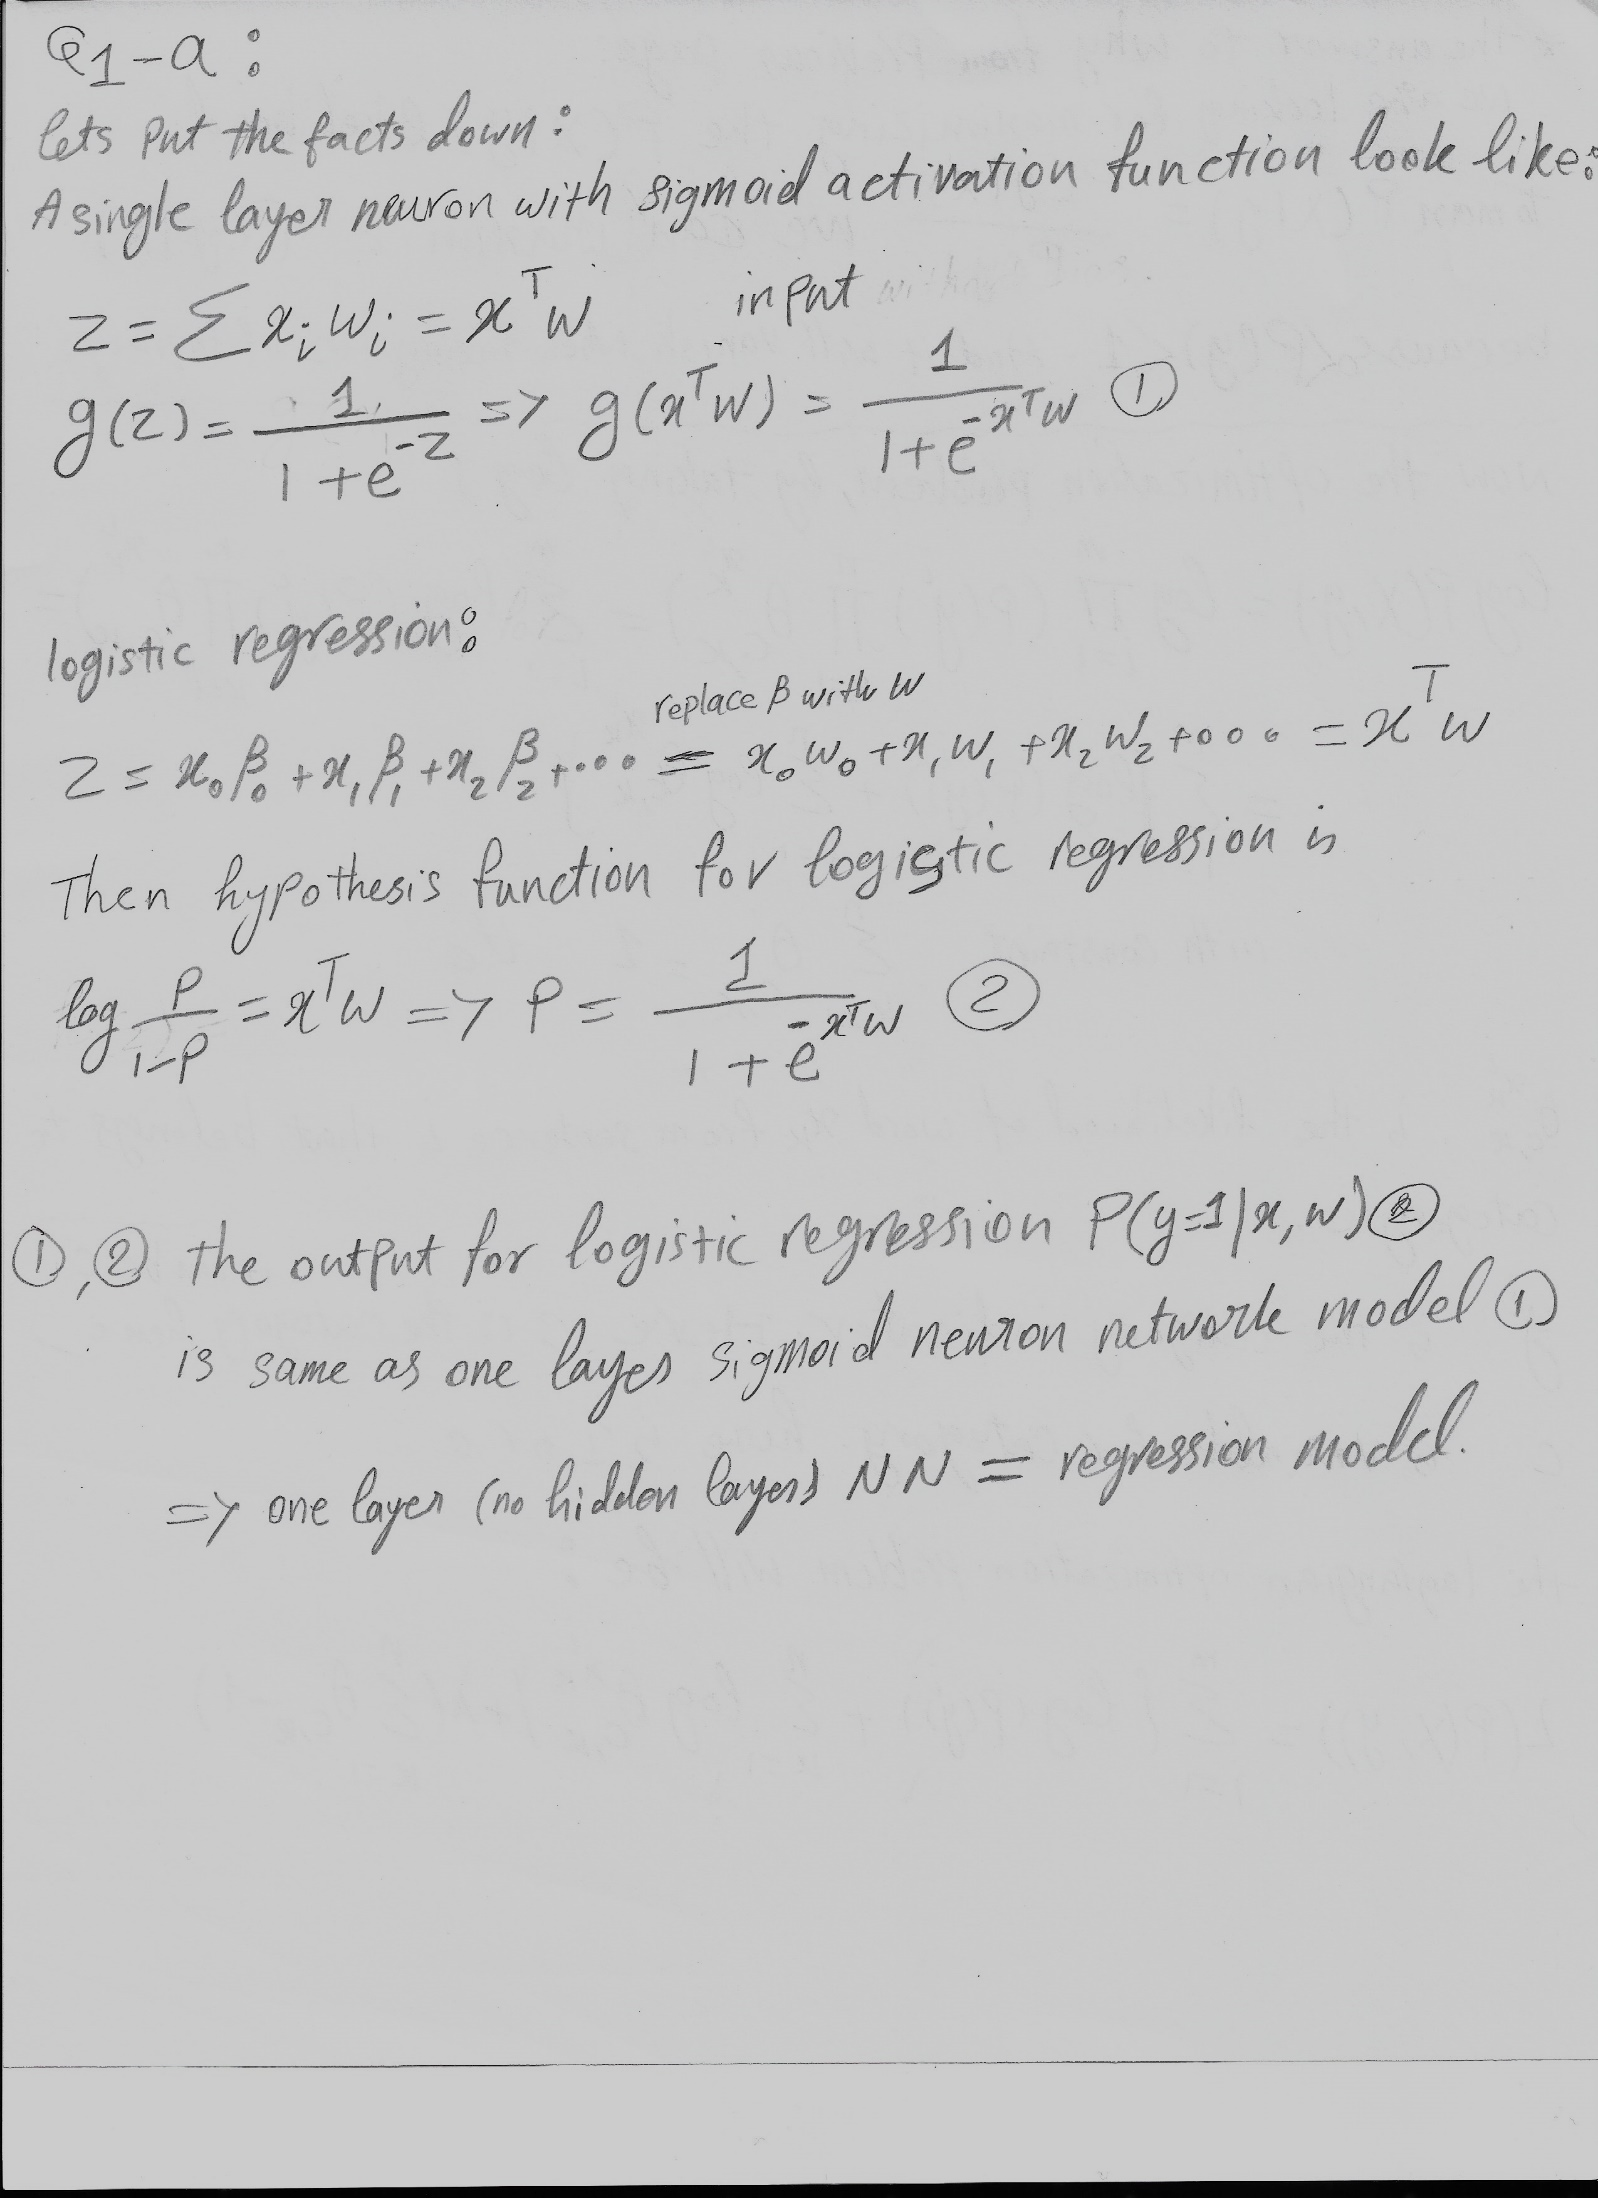 Q1-a:
lets put the facts down:
A single layer neuron with sigmoid activation function look like:
z = Σ xᵢ wᵢ = xᵀw input
g(z) = 1 / (1 + e^-z) => g(xᵀw) = 1 / (1 + e^-xᵀw) ①
logistic regression:
replace β with w
z = x₀β₀ + x₁β₁ + x₂β₂ + ... = x₀w₀ + x₁w₁ + x₂w₂ + .... = xᵀw
Then hypothesis function for logistic regression is
log p / (1-p) = xᵀw => p = 1 / (1 + e^-xᵀw) ②
①, ② the output for logistic regression P(y=1|x, w) ②
is same as one layer sigmoid neuron network model ①
=> one layer (no hidden layers) NN = regression model.